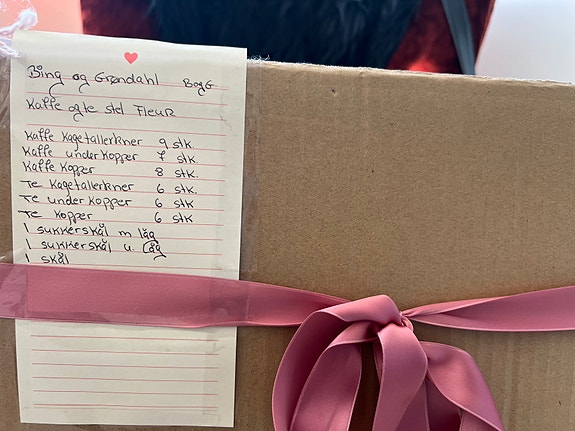 Bing og Grøndahl BogG
Kaffe og te stel Fleur
Kaffe Kagetallerkner 9 stk.
Kaffe underkopper 7 stk.
Kaffe Kopper 8 stk.
Te Kagetallerkner 6 stk.
Te underkopper 6 stk
Te Kopper 6 stk
1 sukkerskål m låg
1 sukkerskål u. låg
1 skål